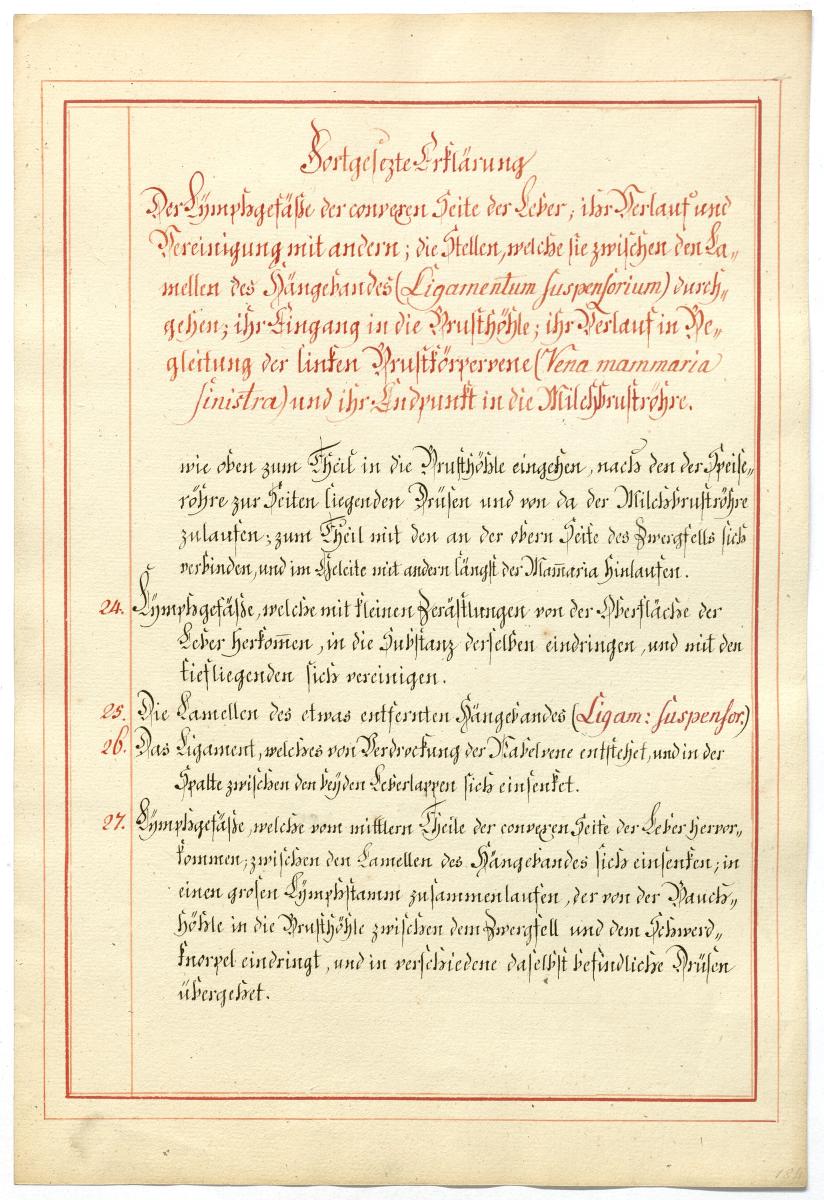 Fortgesezte Erklärung
Der Lÿmphgefäße der convexen Seite der Leber; ihr Verlauf und
Vereinigung mit andern; die Stellen, welche sie zwischen den La„
mellen des Hängebandes (Ligamentum suspensorium) durch„
gehen; ihr Eingang in die Brusthöhle; ihr Verlauf in Be„
gleitung der linken Brustkörpervene (Vena mammaria
sinistra) und ihr Endpunkt in die Milchbruströhre.
wie oben zum Theil in die Brusthöhle eingehen, nach den der Speise„
röhre zur Seiten liegenden Drüsen und von da der Milchbruströhre
zulaufen; zum Theil mit den an der obern Seite des Zwergfells sich
verbinden, und im Geleite mit andern längst der Mam̅aria hinlaufen.
24. Lÿmphgefäße, welche mit kleinen Zerästlungen von der Oberfläche der
Leber herkom̅en, in die Substanz derselben eindringen, und mit den
tiefliegenden sich vereinigen.
25. Die Lamellen des etwas entfernten Hängebandes (Ligam: suspensor.)
26. Das Ligament, welches von Verdrockung der Nabelvene entstehet, und in der
Spalte zwischen den beÿden Leberlappen sich einsenket.
27. Lÿmphgefäße, welche vom mittlern Theile der convexen Seite der Leber hervor„
kommen; zwischen den Lamellen des Hängebandes sich einsenken; in
einen grosen Lÿmphstamm zusammenlaufen, der von der Bauch„
höhle in die Brusthöhle zwischen dem Zwergfell und dem Schwerd„
knorpel eindringt, und in verschiedene daselbst befindliche Drüsen
übergehet.